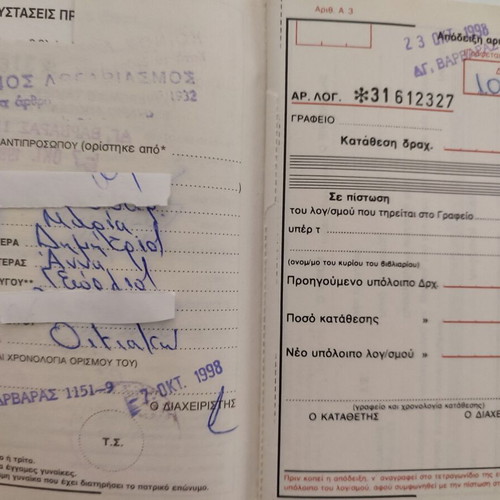 ΥΣΤΑΣΕΙΣ ΠΡ
ΜΟΣ ΛΟΓΑΡΙΑΣΜΟΣ
άρθρ. 1932
ΑΝΤΙΠΡΟΣΩΠΟΥ (ορίστηκε από*
Μαρία
ΕΡΑ Δημήτριος
ΤΕΡΑΣ Άννα
ΥΓΟΥ**
Οικιακών
ΑΙ ΧΡΟΝΟΛΟΓΙΑ ΟΡΙΣΜΟΥ ΤΟΥ)
ΑΡΒΑΡΑΣ 1151-9
7 ΟΚΤ. 1998
Ο ΔΙΑΧΕΙΡΙΣΤΗΣ
Τ.Σ.
ή τρίτο.
έγγαμες γυναίκες.
μη γυναίκα που έχει διατηρήσει το πατρικό επώνυμο.
Αριθ. Α 3
23 ΟΚΤ. 1998
ΑΓ. ΒΑΡΒΑΡΑΣ
Απόδειξη αρι
ΑΡ. ΛΟΓ. *31612327
ΓΡΑΦΕΙΟ
Κατάθεση δραχ.
Σε πίστωση
του λογ/σμού που τηρείται στο Γραφείο
υπέρ τ
(ονομ/μο του κυρίου του βιβλιαρίου)
Προηγούμενο υπόλοιπο Δρχ.
Ποσό κατάθεσης »
Νέο υπόλοιπο λογ/σμού »
(γραφείο και χρονολογία κατάθεσης)
Ο ΚΑΤΑΘΕΤΗΣ Ο ΔΙΑΧΕ
Πριν κοπεί η απόδειξη, ν' αναγραφεί στο τετραγωνίδιο της
υπόλοιπο του λογ/σμού, αφού συμφωνηθεί με την πίστωση